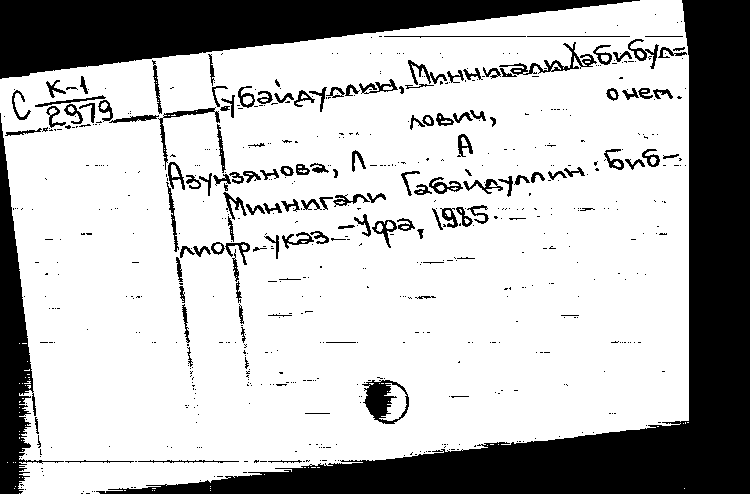 С К-1
2979
Губайдуллин, Миннигали Хабибул=
лович, о нем.
Азунзянова, Л А
Миннигали Габайдуллин: Биб-
лиогр. указ. - Уфа, 1985.